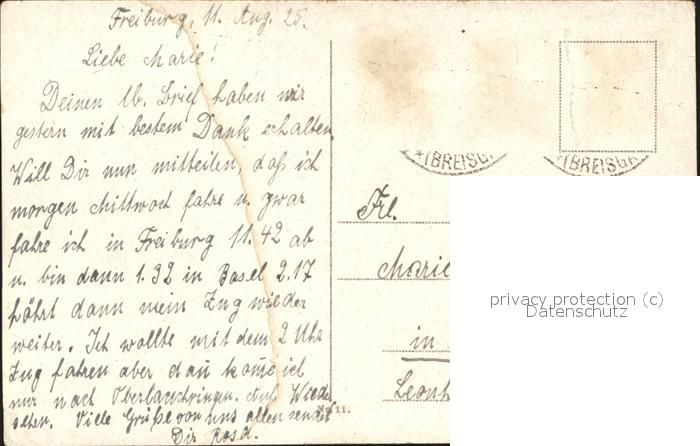 Freiburg, 11. Aug. 25.
Liebe Marie!
Deinen lb. Brief haben wir
gestern mit bestem Dank erhalten
Will Dir nun mitteilen, daß ich
morgen Mittwoch fahre u. zwar
fahre ich in Freiburg 11.42 ab
u. bin dann 1.32 in Basel 2.17
fährt dann mein Zug wieder
weiter. Ich wollte mit dem 2 Uhr
Zug fahren aber dan̄ kom̄e ich
nur nach Oberlauchringen. Auf Wieder
sehen. Viele Grüße von uns allen sendet
Dir Rosa.
11.
*(BREISG
*(BREISGA
Frl.
Marie
in
Leonh
privacy protection (c)
Datenschutz